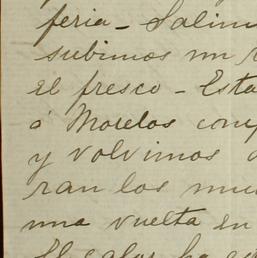 feria - Salim
subimos un
el fresco - Esta
á Morelos com
y volvimos
ran los mu
una vuelta en
El calor ha